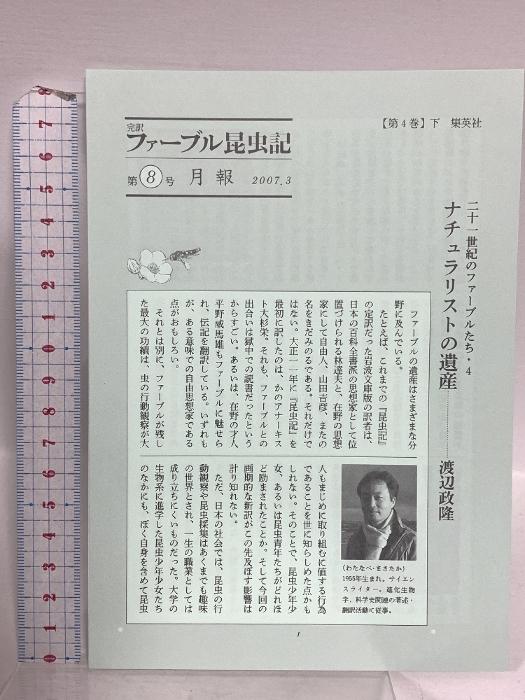 【第4巻】下 集英社
完訳
ファーブル昆虫記
第8号 月報 2007.3
二十一世紀のファーブルたち・4
ナチュラリストの遺産――渡辺政隆
ファーブルの遺産はさまざまな分
野に及んでいる。
たとえば、これまでの『昆虫記』
の定訳だった岩波文庫版の訳者は、
日本の百科全書派の思想家として位
置づけられる林達夫と、在野の思想
家にして自由人、山田吉彦、またの
名をきだみのるである。それだけで
はない。大正一一年に『昆虫記』を
最初に訳したのは、かのアナーキス
ト大杉栄。それも、ファーブルとの
出合いは獄中での読書だったという
からすごい。あるいは、在野の才人
平野威馬雄もファーブルに魅せら
れ、伝記を翻訳している。いずれも
が、ある意味での自由思想家である
点がおもしろい。
それとは別に、ファーブルが残し
た最大の功績は、虫の行動観察が大
人もまじめに取り組むに値する行為
であることを世に知らしめた点かも
しれない。そのことで、昆虫少年少
女、あるいは昆虫青年たちがどれほ
ど励まされたことか。そして今回の
画期的な新訳がこの先及ぼす影響は
計り知れない。
ただ、日本の社会では、昆虫の行
動観察や昆虫採集はあくまでも趣味
の世界とされ、一生の職業としては
成り立ちにくいものだった。大学の
生物系に進学した昆虫少年少女たち
のなかにも、ぼく自身を含めて昆虫
(わたなべ・まさたか)
1955年生まれ。サイエン
スライター。進化生物
学、科学史関連の著述・
翻訳活動に従事。
1
8
7
6
5
4
3
2
1
0